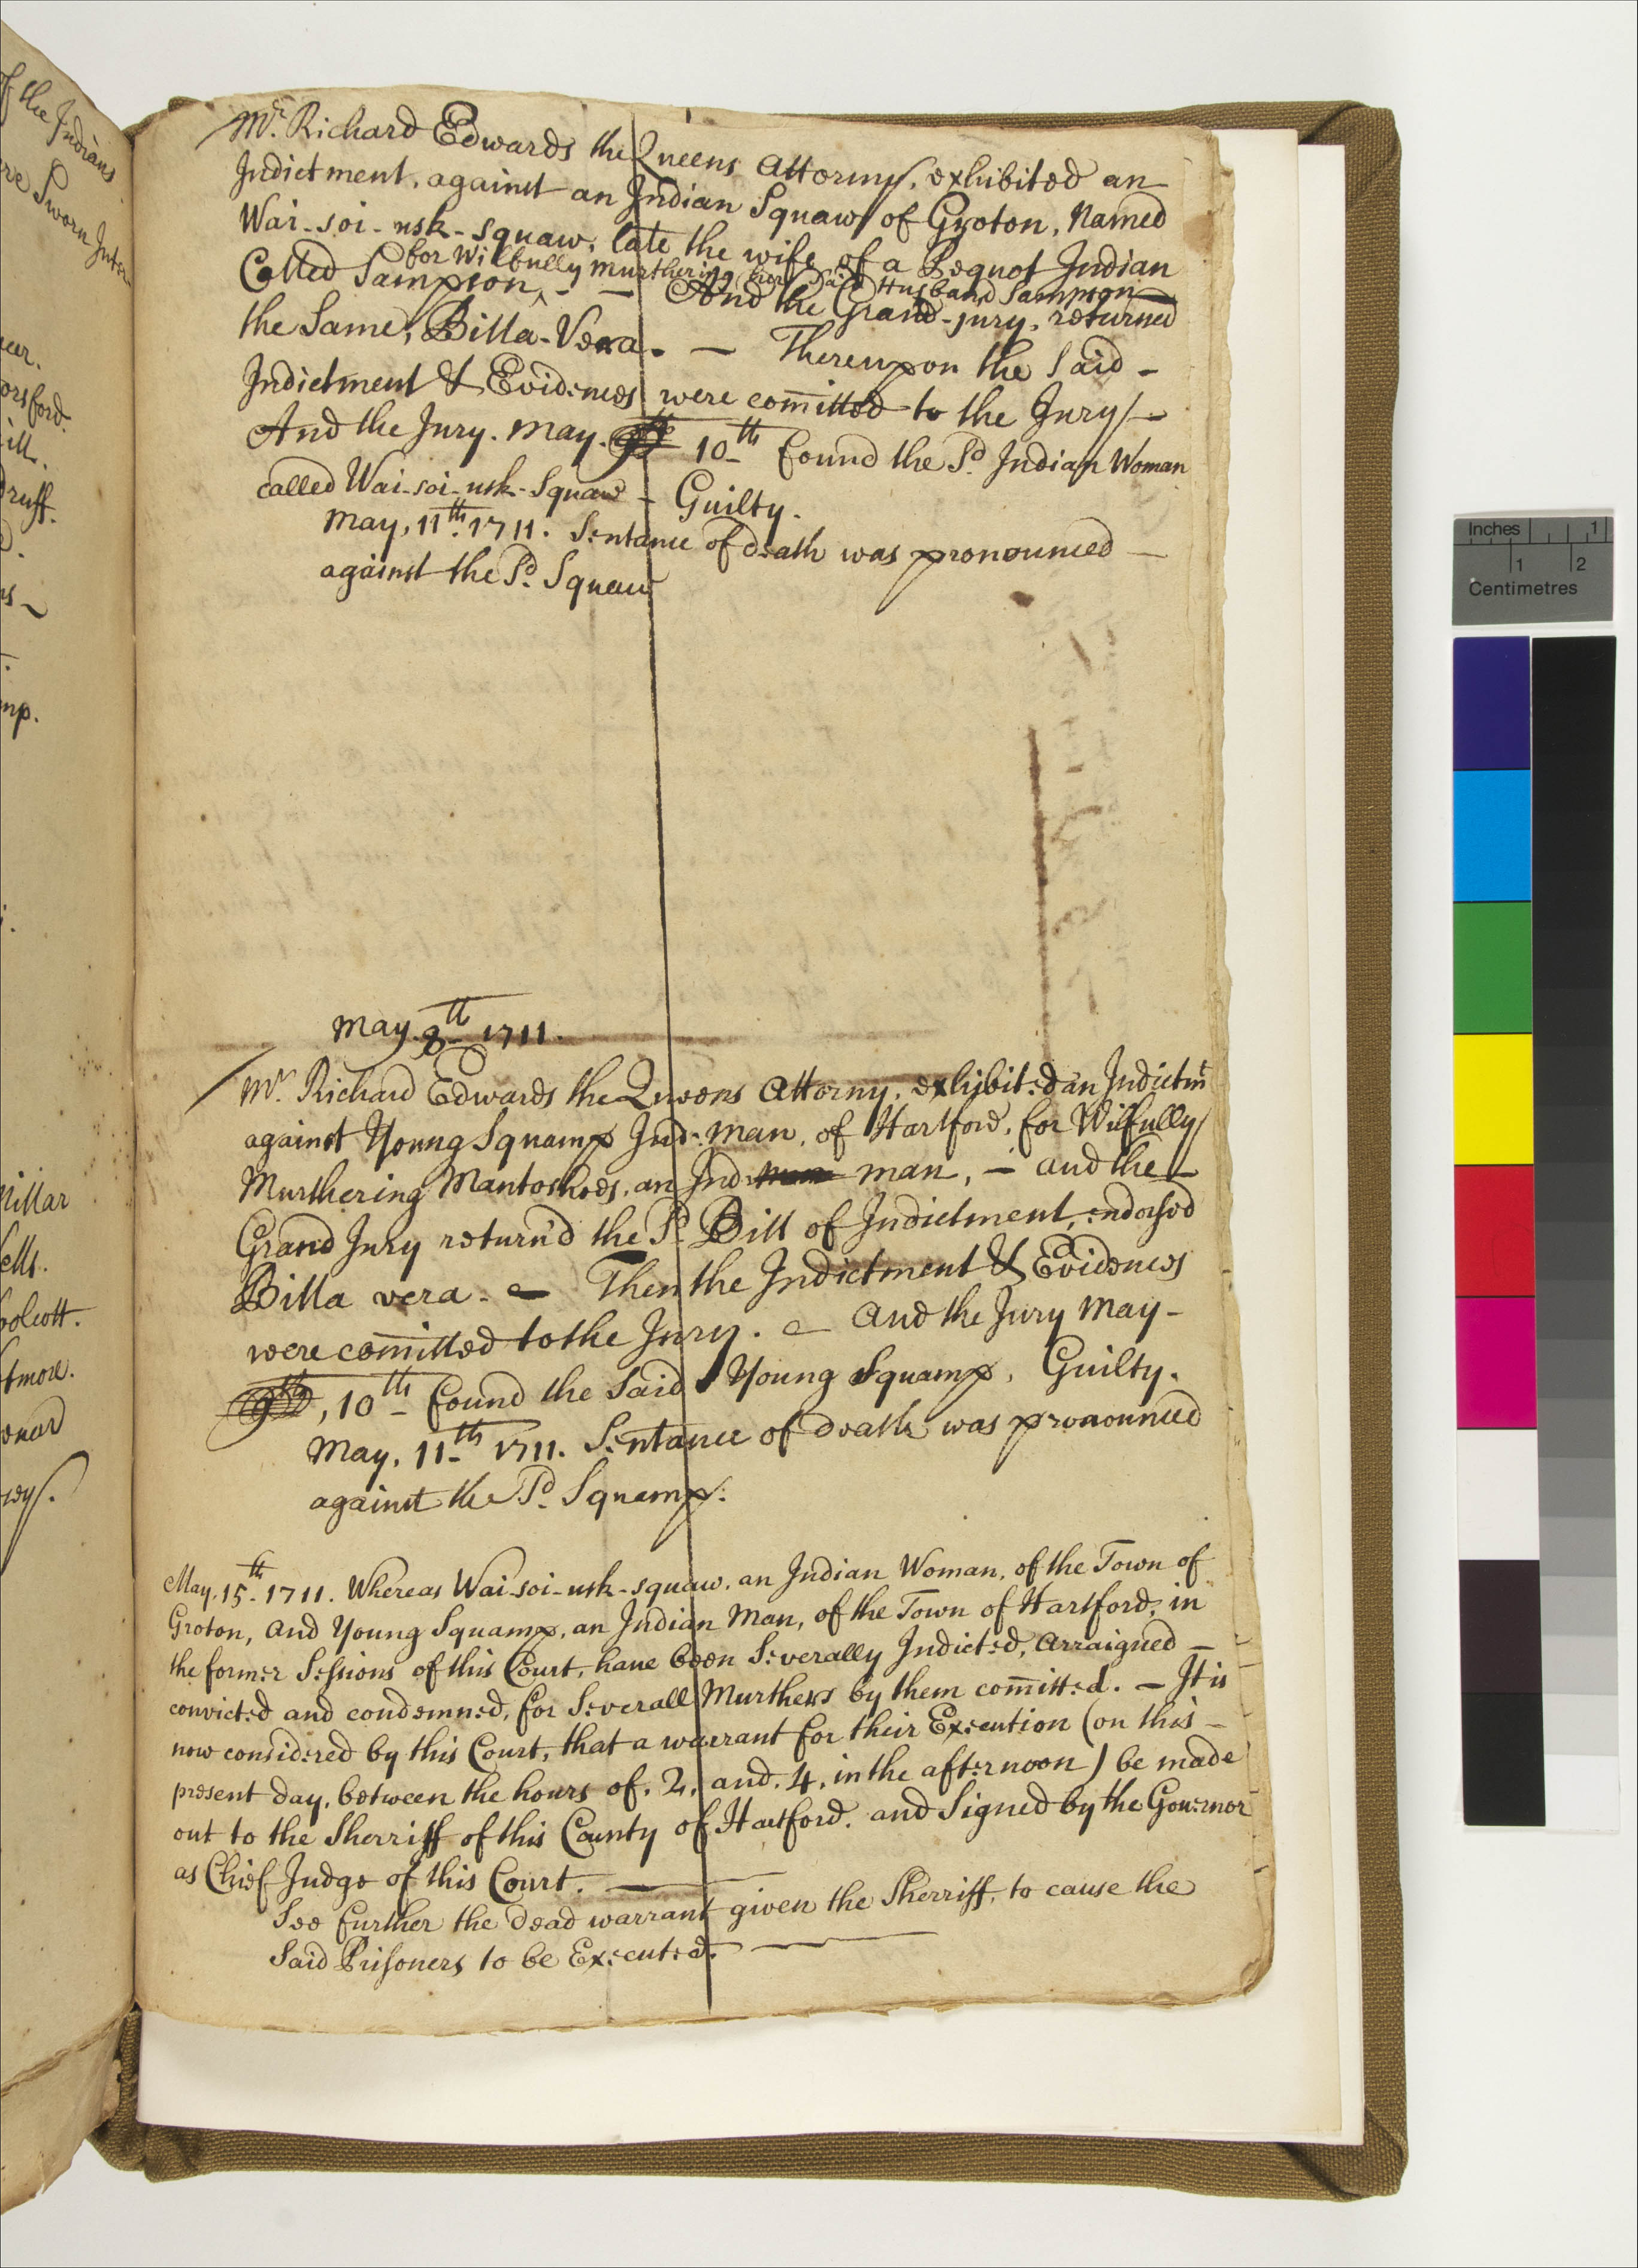 of the Indians
re Sworn Inter
orsford.
ill.
druff.
mp.
Millar
ells.
oolcott.
tmore.
onard
Mr. Richard Edwards the Queens Attorny, exhibited an
Indictment, against an Indian Squaw of Groton, Named
Wai-soi-usk-squaw, late the wife of a Pequot Indian
for Wilfully murthering her said Husband Sampson
Called Sampson, ^ - - And the Grand-jury, returned
the Same, Billa-Vera. — Thereupon the Said -
Indictment & Evidences were comitted to the Jury/-
And the Jury. May. 9th 10th found the Sd. Indian Woman
called Wai-soi-usk-Squaw - Guilty.
May, 11th. 1711. Sentance of death was pronounced —
against the Sd. Squaw
May. 8th 1711.
Mr. Richard Edwards the Queens Attorny, exhibited an Indictmt
against Young Squamp Ind: man, of Hartford, for Wilfully
Murthering Mantoshees, an Ind: man man, - and the
Grand Jury return'd the Sd. Bill of Indictment, endorsed
Billa vera. — Then the Indictment & Evidences
were comitted to the Jury. — And the Jury May -
9th, 10th found the Said Young Squamp, Guilty.
May, 11th 1711. Sentance of death was pronounced
against the Sd. Squamp.
May. 15th. 1711. Whereas Wai-soi-usk-squaw, an Indian Woman, of the Town of
Groton, and Young Squamp, an Indian Man, of the Town of Hartford, in
the former Sessions of this Court, have been Severally Indicted, arraigned -
convicted and condemned, for Severall Murthers by them comitted. — It is
now considered by this Court, that a warrant for their Execution (on this -
present day, between the hours of, 2, and, 4, in the afternoon) be made
out to the Sherriff of this County of Hartford, and Signed by the Governor
as Chief Judge of this Court. —
See further the dead warrant given the Sherriff, to cause the
Said Prisoners to be Executed. —
Inches 1
1 2
Centimetres